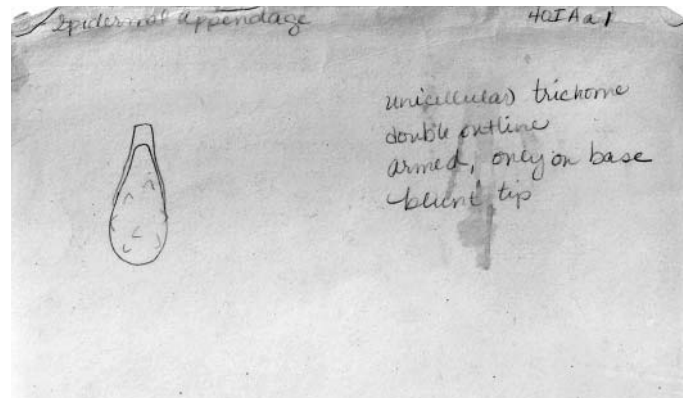 Epidermal Appendage
40IAa1
unicellular trichome
double outline
armed, only on base
blunt tip